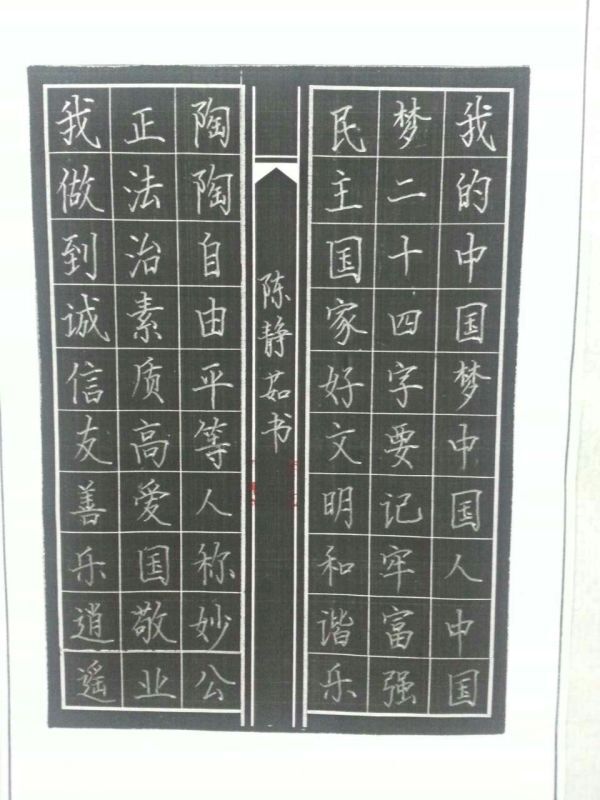 我的中国梦中国人中国
梦二十四字要记牢富强
民主国家好文明和谐乐
陈静茹书
陶陶自由平等人称妙公
正法治素质高爱国敬业
我做到诚信友善乐逍遥